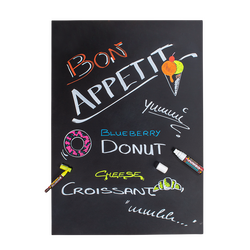 BON
APPETIT
yummi
BLUEBERRY
DONUT
CHEESE
CROISSANT
"mmhhh..."